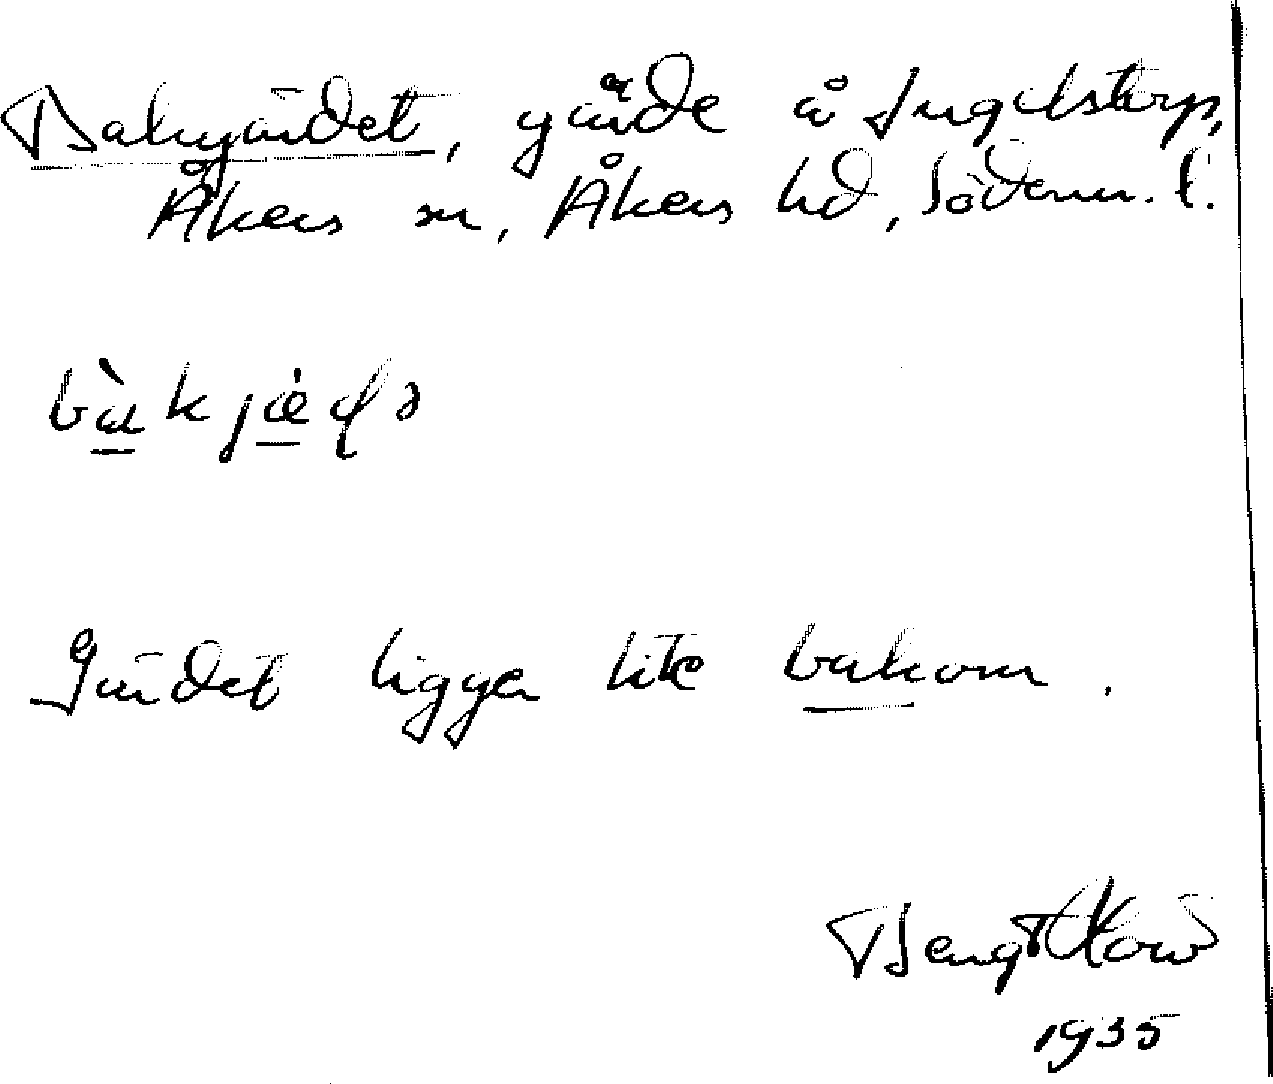 Bakgärdet, gärde å Ingelstorp,
Åkers sn, Åkers hd, Söderm. l.
bàkjæḍə
Gärdet ligger lite bakom.
Bengt
1935